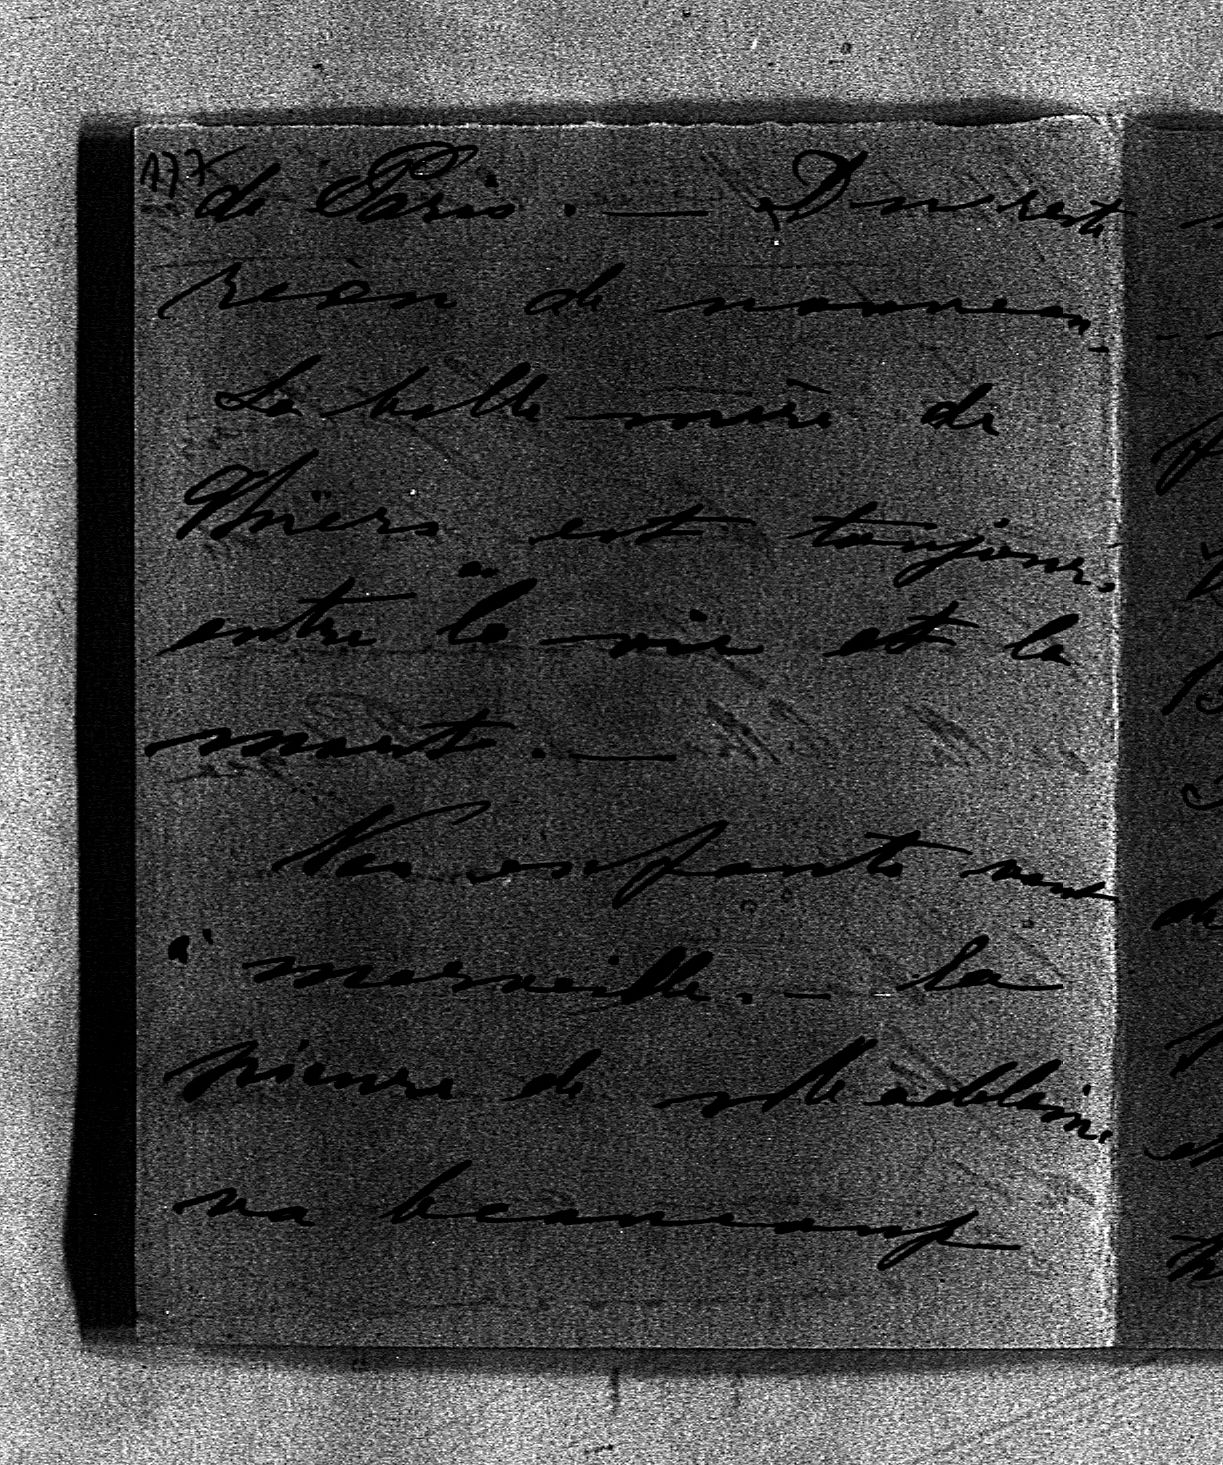 177
de Paris. — Du reste
rien de nouveau. —
La belle mère de
Thiers est toujours
entre la vie et la
mort. —
Nos enfants vont
à merveille. — la
pieuvre de Mlle adelaine
va beaucoup